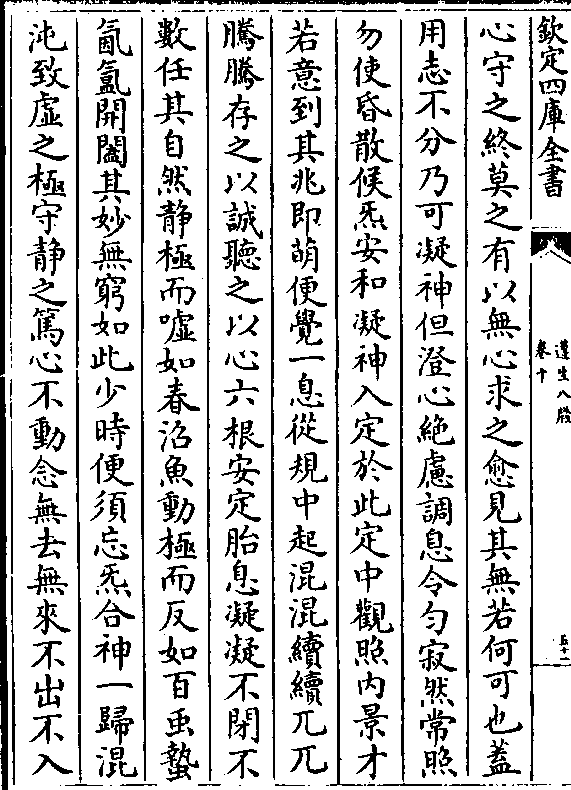 欽定四庫全書
遵生八牋
卷十
五十一
心守之終莫之有以無心求之愈見其無若何可也葢
用志不分乃可凝神但澄心絶慮調息令匀寂然常照
勿使昏散候炁安和凝神入定於此定中觀照内景才
若意到其兆即萌便覺一息從規中起混混續續兀兀
騰騰存之以誠聽之以心六根安定胎息凝凝不閉不
數任其自然静極而噓如春沼魚動極而反如百虫蟄
氤氳開闔其妙無窮如此少時便須忘炁合神一歸混
沌致虚之極守静之篤心不動念無去無來不出不入